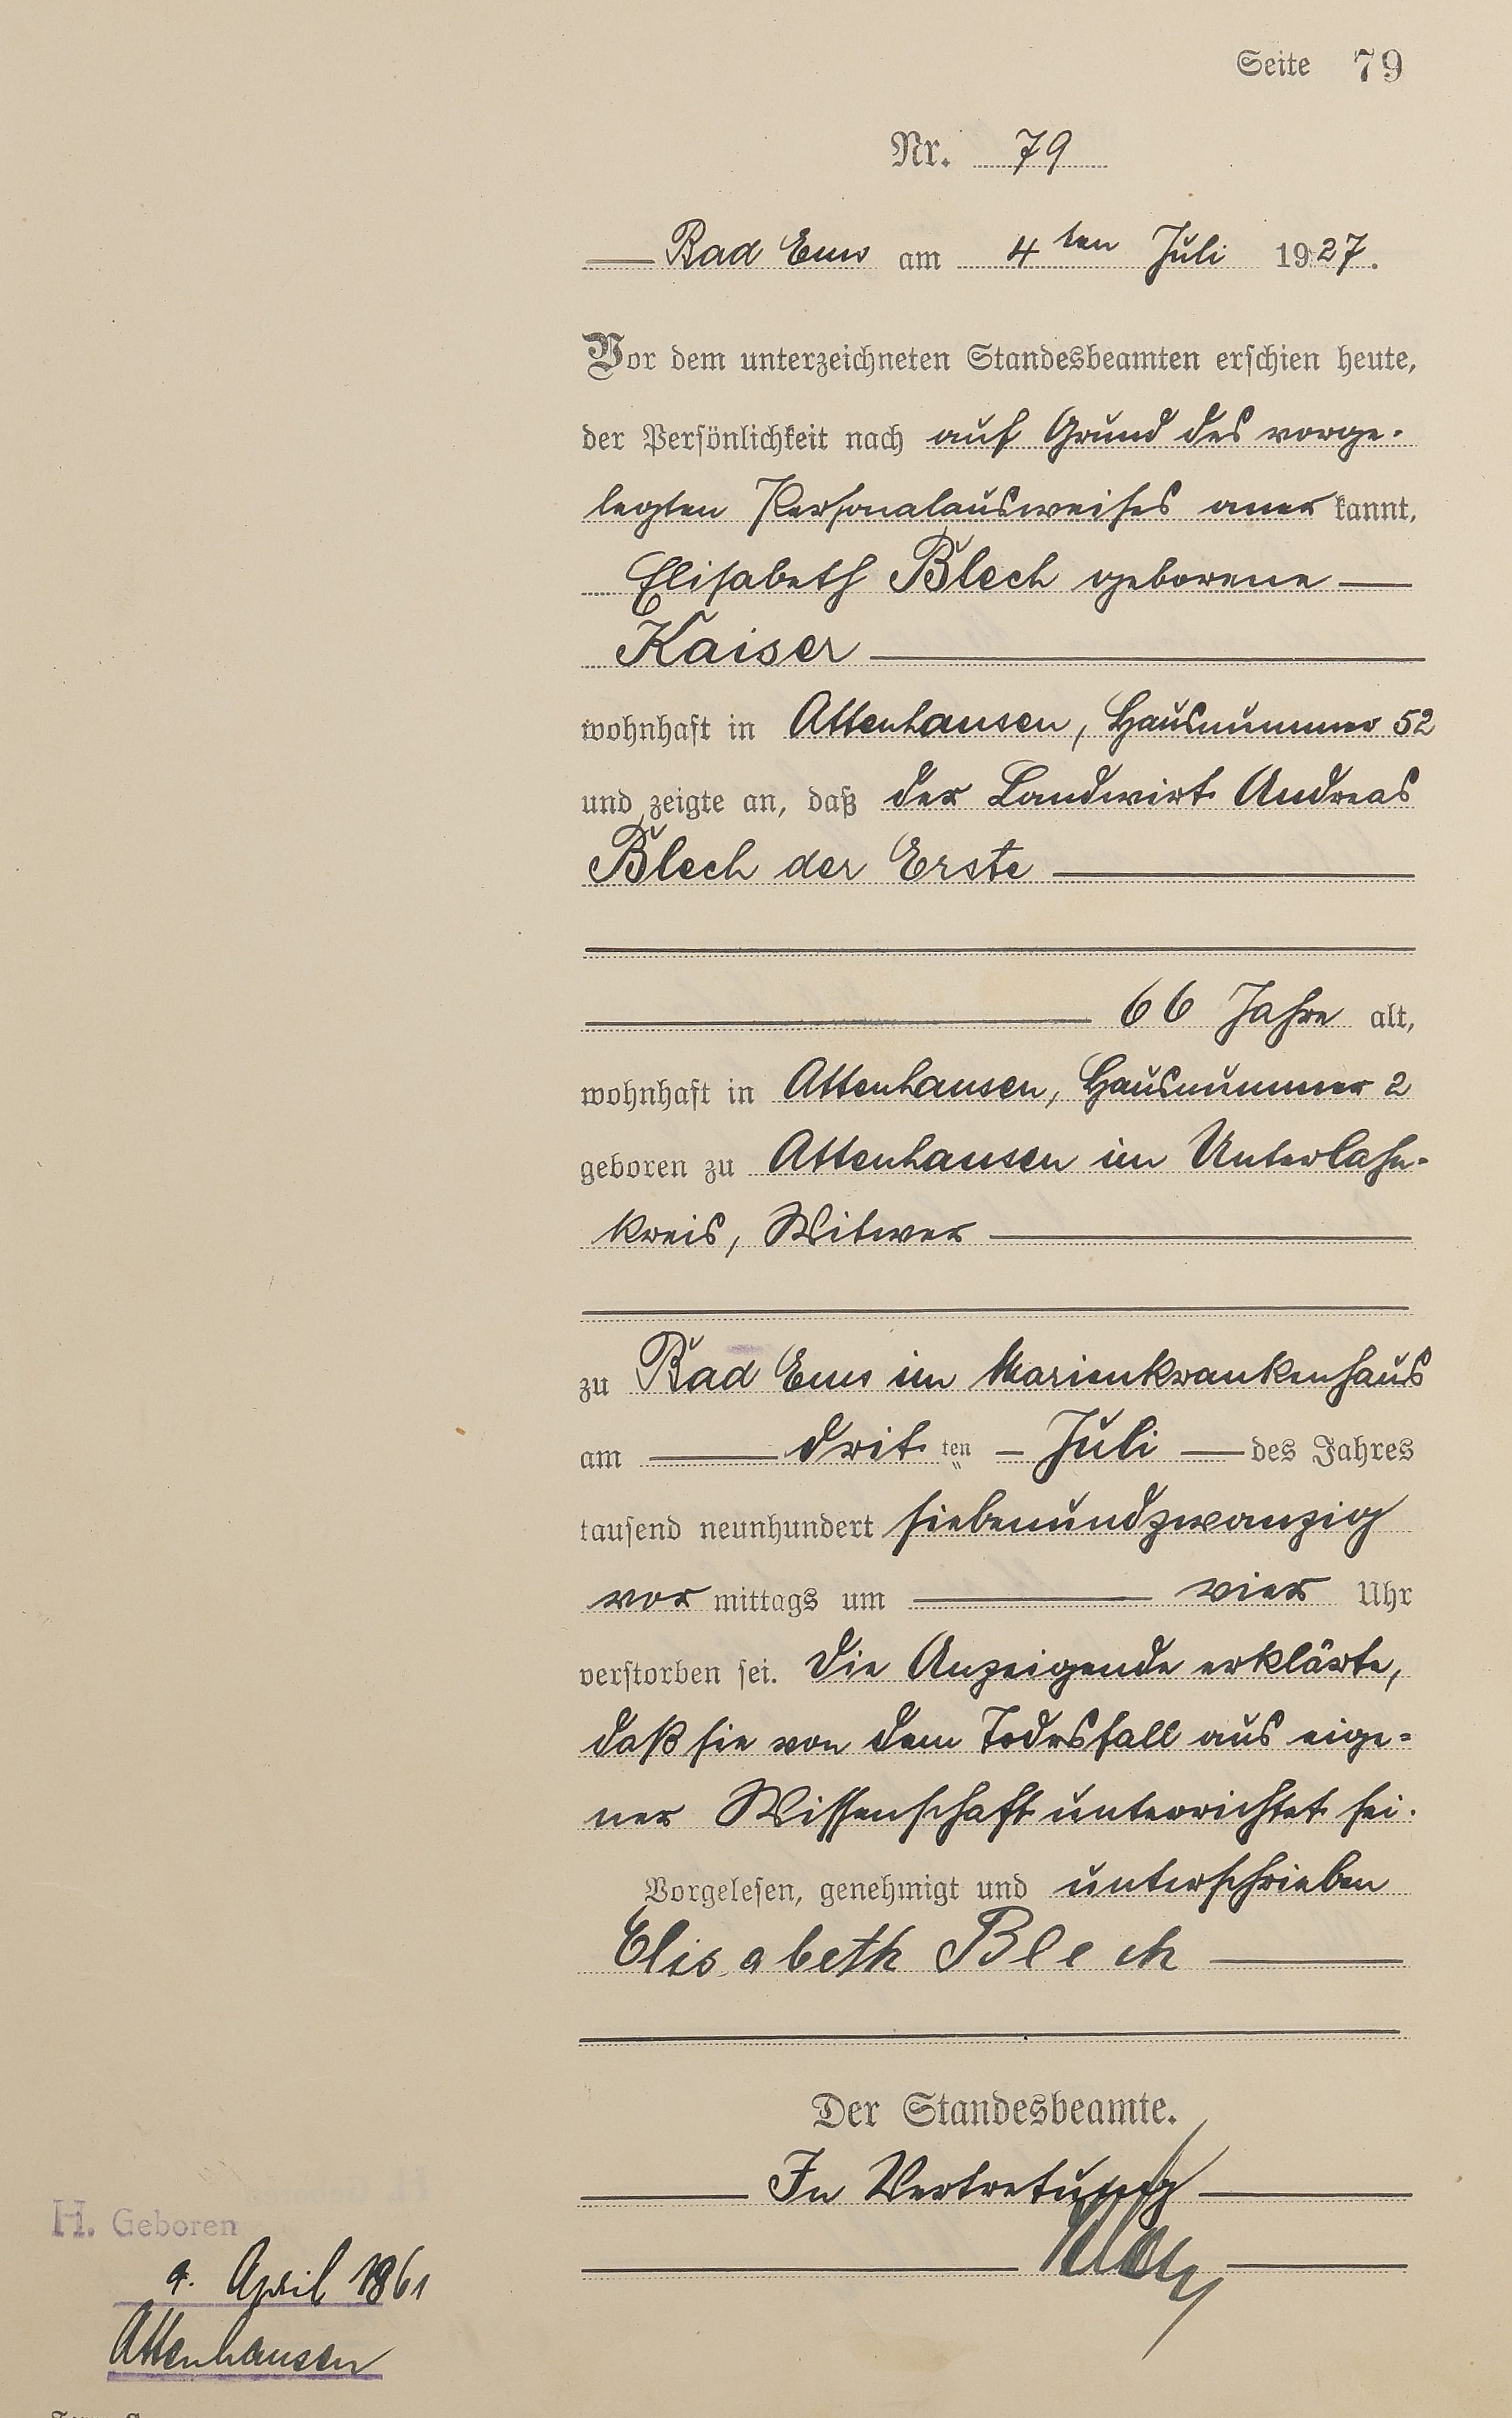 Seite 79
Nr. 79
Bad Ems am 4ten Juli 1927.
Vor dem unterzeichneten Standesbeamten erschien heute,
der Persönlichkeit nach auf Grund des vorge-
legten Personalausweises anerkannt,
Elisabeth Blech geborene
Kaiser
wohnhaft in Attenhausen, Hausnummer 52
und zeigte an, daß der Landwirt Andreas
Blech der Erste
66 Jahre alt,
wohnhaft in Attenhausen, Hausnummer 2
geboren zu Attenhausen im Unterlahn-
kreis, Witwer
zu Bad Ems im Marienkrankenhaus
am dritten Juli des Jahres
tausend neunhundert siebenundzwanzig
vormittags um vier Uhr
verstorben sei. Die Anzeigende erklärte,
daß sie von dem Todesfall aus eige-
ner Wissenschaft unterrichtet sei.
Vorgelesen, genehmigt und unterschrieben
Elisabeth Blech
Der Standesbeamte.
In Vertretung
H. Geboren
9. April 1861
Attenhausen